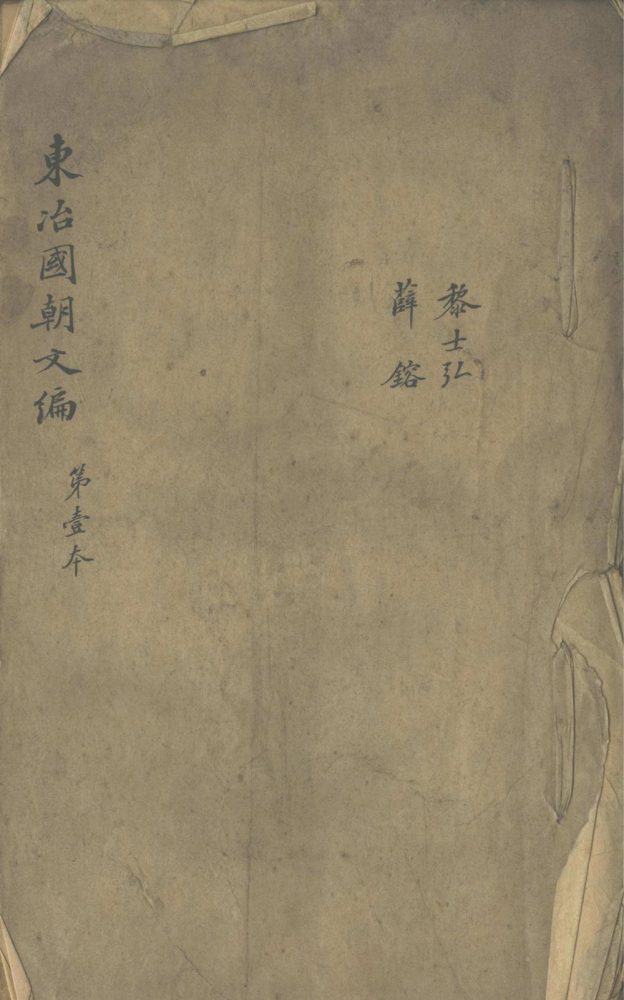 黎士弘
薛鎔
東冶國朝文編
第壹本